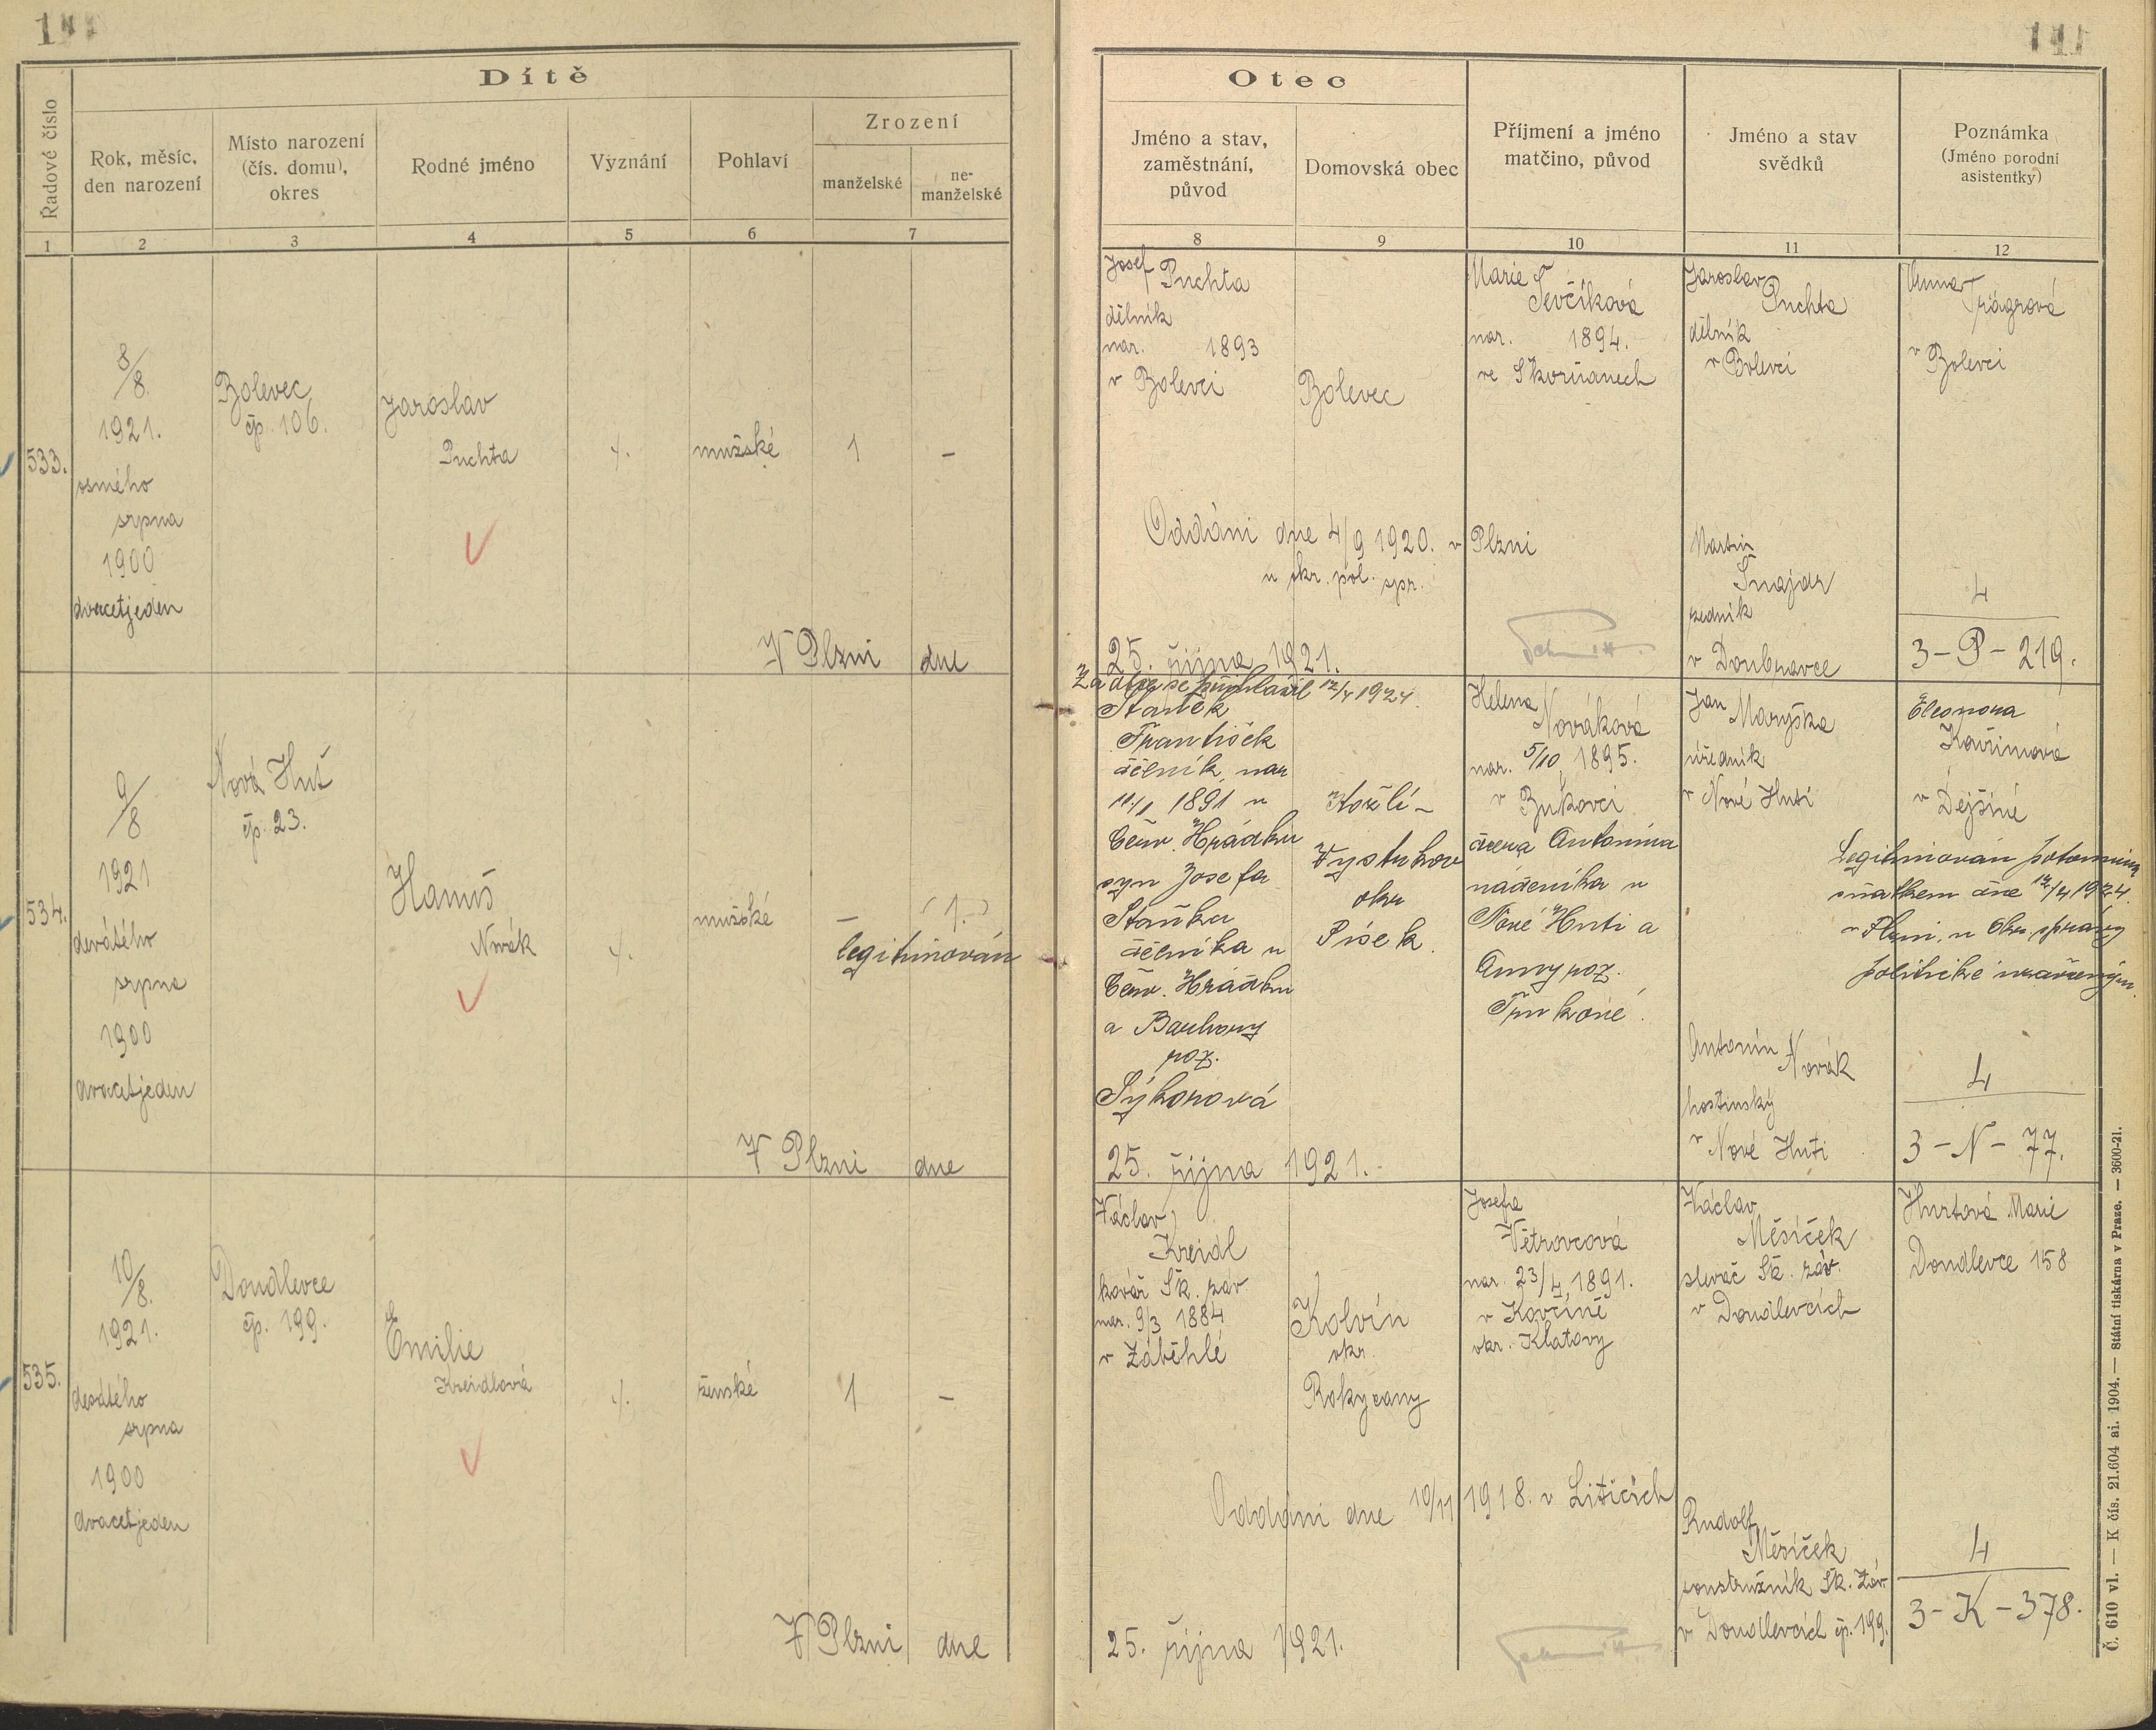 Dítě
Řadové číslo
Rok, měsíc, den narození
Místo narození (čís. domu), okres
Rodné jméno
Vyznání
Pohlaví
Zrození
manželské
ne-manželské
1 2 3 4 5 6 7
533.
8/8.
1921.
osmého
srpna
1900
dvacetjeden
Bolevec
čp. 106.
Jaroslav
Puchta
mužské
1
–
V Plzni dne
534.
9/8
1921
devátého
srpna
1900
dvacetjeden
Nová Huť
čp. 23.
Hanuš
Novák
mužské
–
(1.)
legitimován
V Plzni dne
535.
10/8.
1921.
desátého
srpna
1900
dvacetjeden
Doudlevce
čp. 199.
Emilie
Kreidlová
ženské
1
–
V Plzni dne
Otec
Jméno a stav, zaměstnání, původ
Domovská obec
Příjmení a jméno matčino, původ
Jméno a stav svědků
Poznámka
(Jméno porodní asistentky)
8 9 10 11 12
Josef Puchta
dělník
nar. 1893
v Bolevci
Bolevec
Marie
Ševčíková
nar. 1894.
ve Skvrňanech
Jaroslav
Puchta
dělník
v Bolevci
Anna
v Bolevci
Oddáni dne 4/9 1920. v Plzni
u okr. pol. spr.
Martin
Šnajdr
zedník
v Doubravce
4
3-P-219.
25. října 1921.
Za otce se přihlásil 12/4 1924.
Staněk
František
dělník, nar
1891 v
Červ. Hrádku
syn Josefa
Staňka
dělníka v
Červ. Hrádku
a Barbory
roz.
Sýkorová
Kožlí-
okr
Písek.
Helena
Nováková
nar. 5/10 1895.
v Bukovci
dcera Antonína
nádeníka v
Nové Huti a
Anny roz.
Jan Maryška
úředník
v Nové Huti
Eleonora
Kouřimová
v Dejšíně
Legitimován potomním
sňatkem dne 12/4 1924.
v Plzni, u Okr. správy
politické uzavřeným.
Antonín Novák
hostinský
v Nové Huti
4
3-N-77.
25. října 1921.
Václav
Kreidl
kovář Šk. záv.
nar. 9/3 1884
v Záběhlé
Kolvín
okr.
Rokycany
Josefa
Větrovcová
nar. 23/4 1891.
v Kovčíně
okr. Klatovy
Václav
Měsíček
slevač Šk. záv.
v Doudlevcích
Hurtová Marie
Doudlevce 158
Oddáni dne 10/11 1918. v Liticích
Rudolf
Měsíček
soustružník Šk. Záv
v Doudlevcích čp. 199.
4
3-K-378.
25. října 1921.
Č. 610 vl. — K čís. 21.604 ai. 1904. — Státní tiskárna v Praze. — 3600-21.